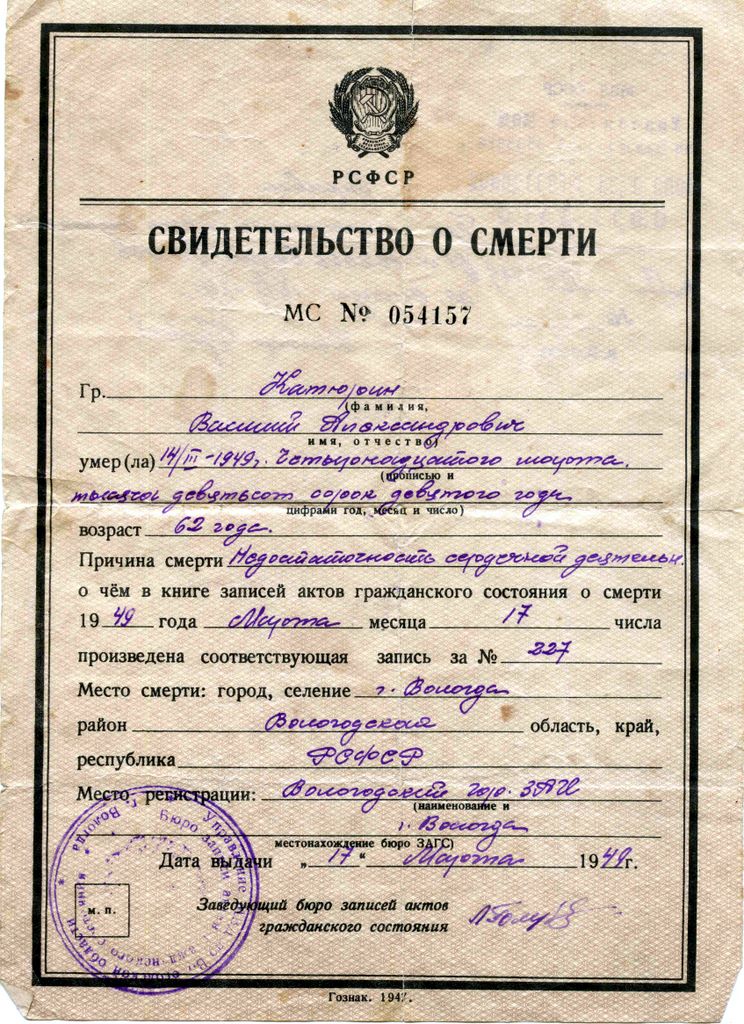 РСФСР
СВИДЕТЕЛЬСТВО О СМЕРТИ
МС № 054157
Гр. Катюрин
(фамилия,
Василий Александрович
имя, отчество)
умер(ла) 14/III-1949г. Четырнадцатого марта
(прописью и
тысяча девятьсот сорок девятого года
цифрами год, месяц и число)
возраст 62 года.
Причина смерти Недостаточность сердечной деятельн.
о чём в книге записей актов гражданского состояния о смерти
19 49 года Марта месяца 17 числа
произведена соответствующая запись за № 227
Место смерти: город, селение г. Вологда
район Вологодская область, край,
республика РСФСР
Место регистрации: Вологодский гор. ЗАГС
(наименование и
г. Вологда
местонахождение бюро ЗАГС)
Дата выдачи „17“ Марта 1949г.
м. п.
Заведующий бюро записей актов
гражданского состояния
Гознак. 194